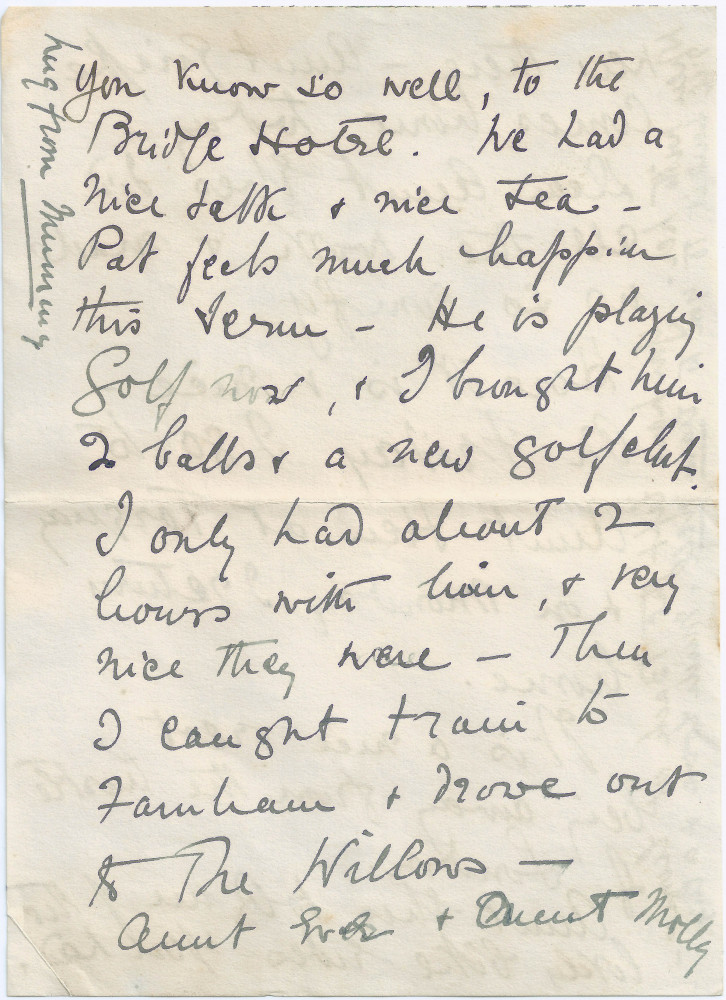 you know so well, to the
Bridge Hotel. We had a
nice talk & nice tea -
Pat feels much happier
this term - He is playing
Golf now, & I brought him
2 balls & a new golf club.
I only had about 2
hours with him, & very
nice they were - Then
I caught train to
Farnham & drove out
to The Willows -
Aunt & Aunt Molly
from Mummy